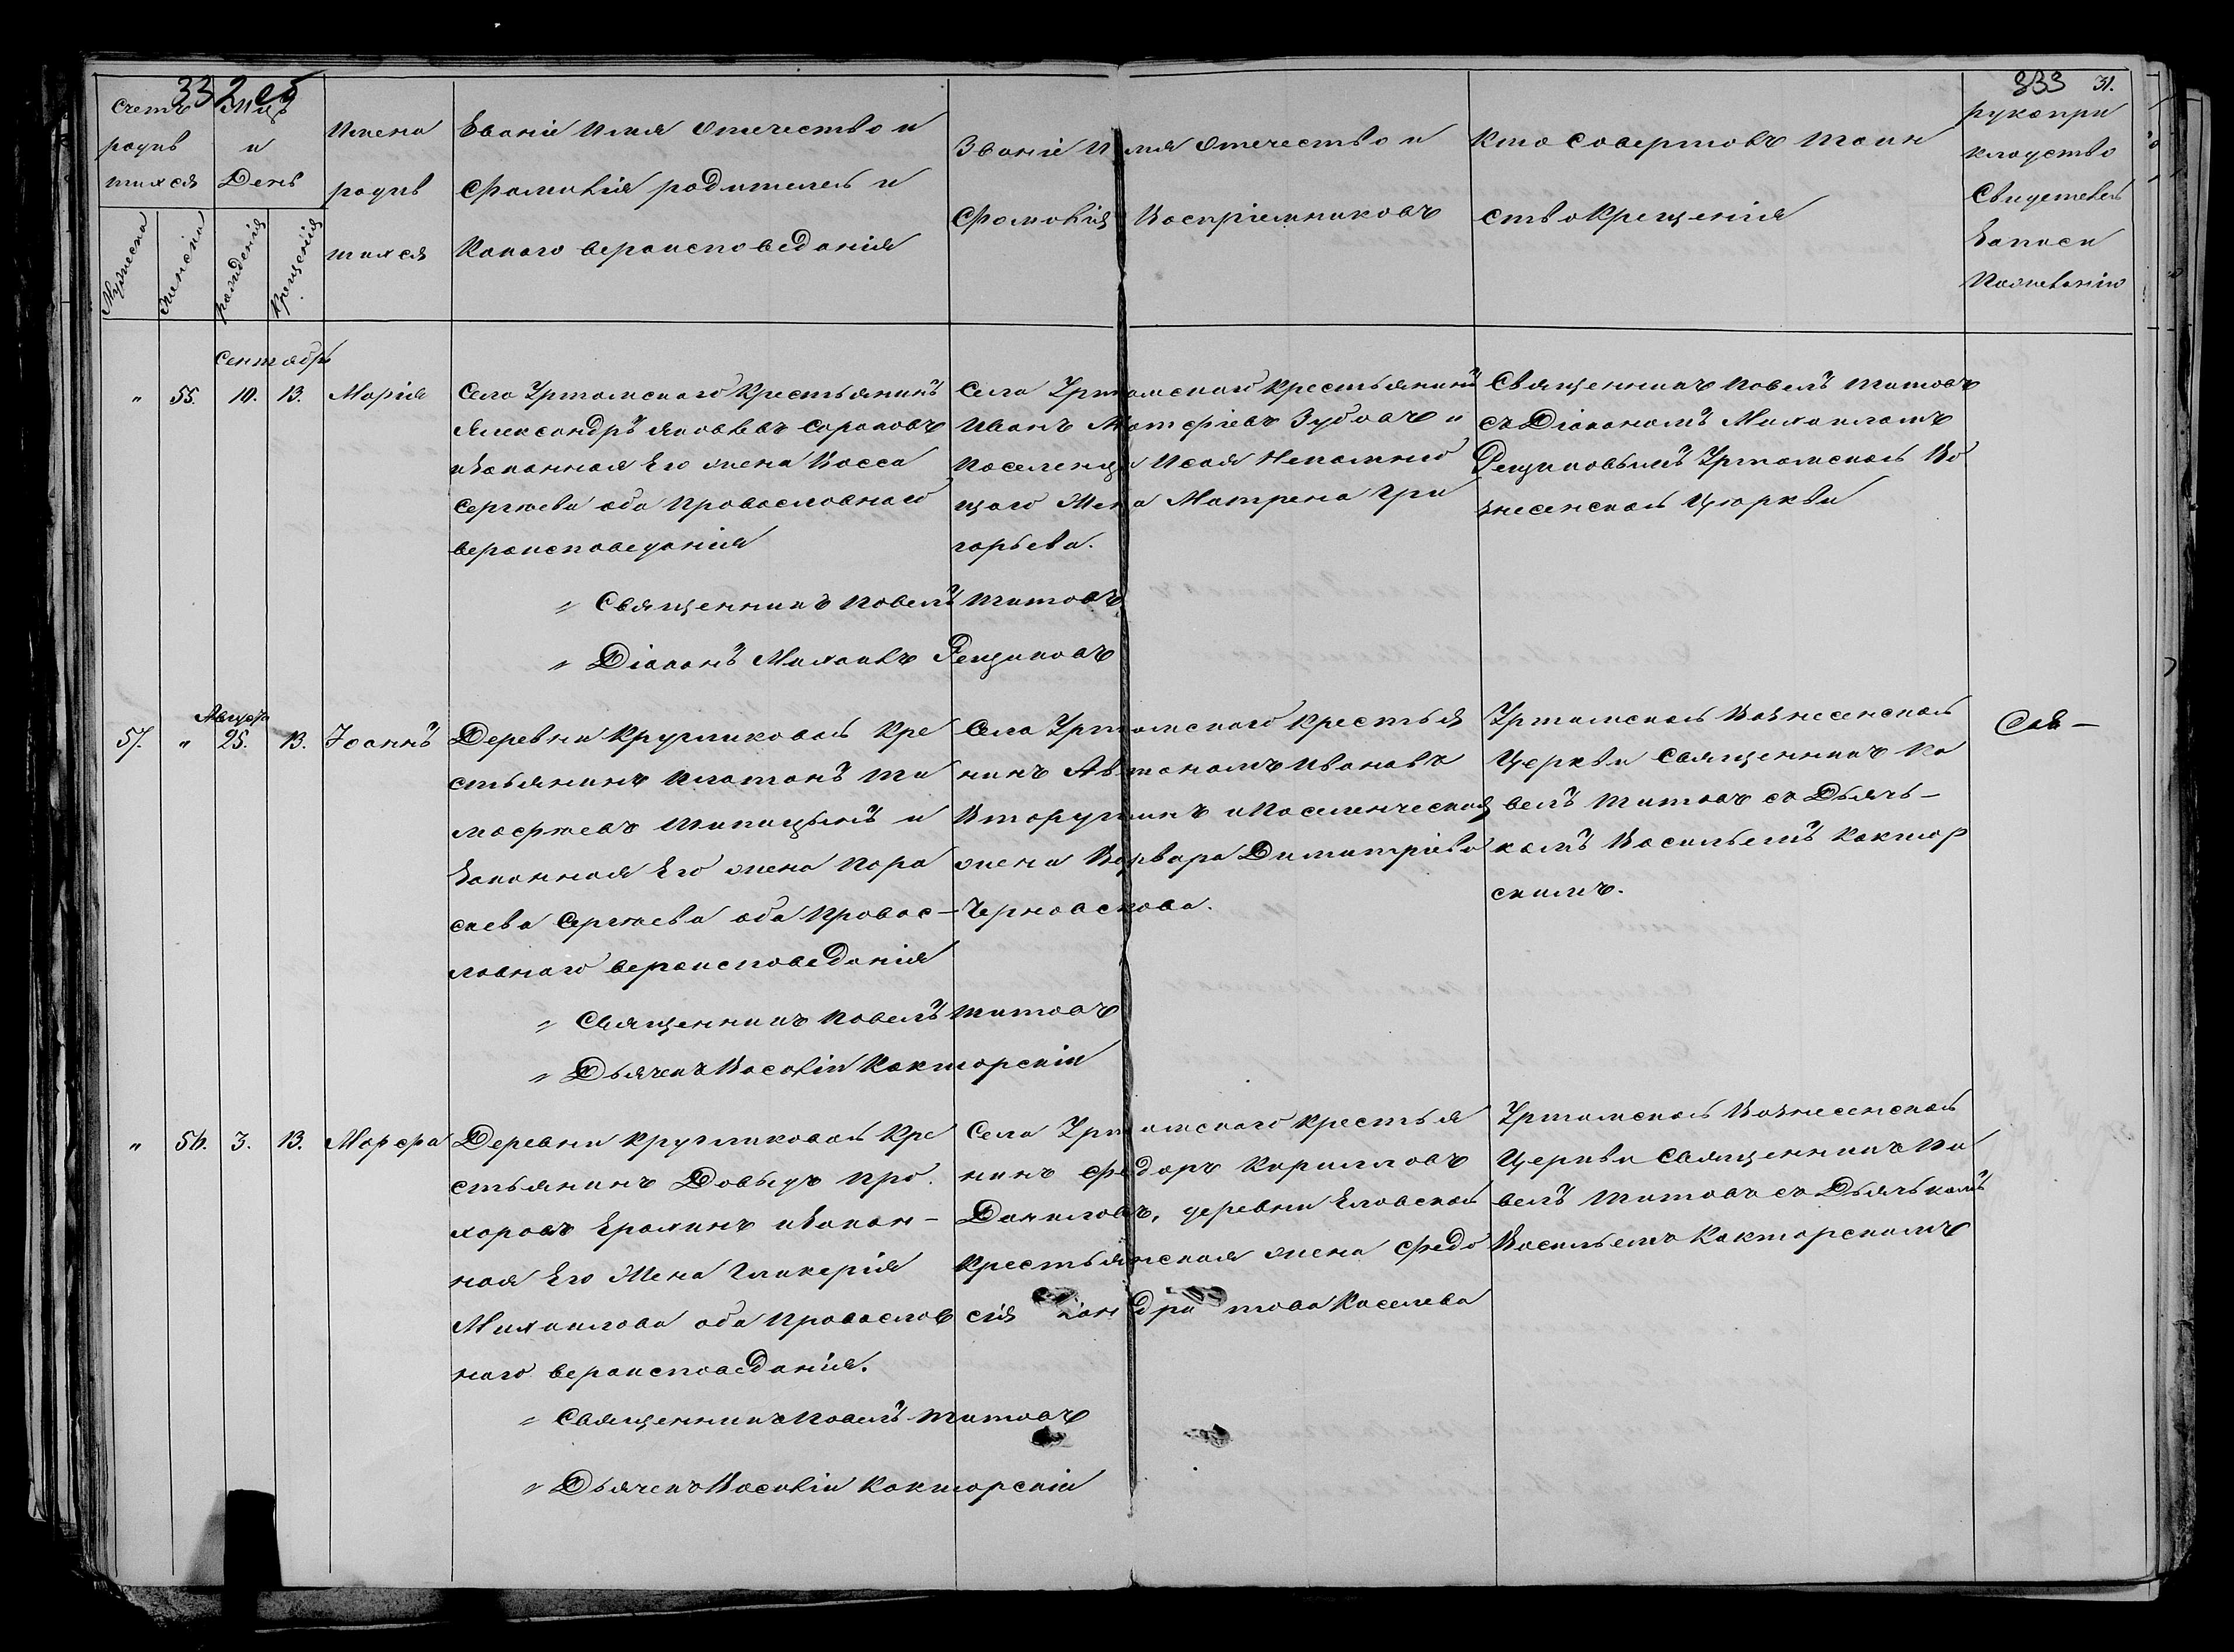 332 об
333 31.
Счетъ
родив
шихся
Мцъ
и
День
Имена
родив
шихся
Званіе Имя Отечество и
Фамилія родителей и
Какого вероисповеданія
Званіе Имя Отечество и
Фамилія Воспріемниковъ
Кто Совершилъ таин
ство Крещенія
рукопри
кладство
Свидетелей
Записи
По желанію
Мужеска
Женска
рожденія
Крещенія
Сентябрь
" 55. 10. 13. Марія
Села Уртамскаго Крестьянинъ
Александръ Яковлевъ Сороковъ
и Законная Его жена Васса
Сергеева оба Православнаго
вероисповеданія
Села Уртамскаго Крестьянинъ
Иванъ Матфіевъ Зубовъ и
Поселенца Исая Непомня
щаго Жена Матрена Гри
горьева.
Священникъ Павелъ Титовъ
съ Діакономъ Михаиломъ
Рещиковымъ Уртамской Во
знесенской Церкви
" Священникъ Павелъ Титовъ
" Діаконъ Михаилъ Рещиковъ
Августа
57. " 25. 13. Іоаннъ
Деревни Кругликовой Кре
стьянинъ Платонъ Ти
мофеевъ Шипицынъ и
Законная Его жена Пара
скева Сергеева оба Правос-
лавнаго вероисповеданія
Села Уртамскаго Крестья
нинъ Автономъ Ивановъ
Вторушинъ и Поселенческая
жена Варвара Димитріева
Черновскова.
Уртамской Вознесенской
Церкви Священникъ Па
велъ Титовъ съ Дьяч-
комъ Васильемъ Кактор
скимъ.
" Священникъ Павелъ Титовъ
" Дьячекъ Василій Какторскій
" 56. 3. 13. Марфа
Деревни Кругликовой Кре
стьянинъ Давыдъ Про
хоровъ Ерохинъ и Закон-
ная Его Жена Гликерія
Михаилова оба Православ
наго вероисповеданія.
Села Уртамскаго Крестья
нинъ Федоръ Кириловъ
Даниловъ, деревни Еловской
Крестьянская жена Федо
сія Кондратова Киселева
Уртамской Вознесенской
Церкви Священникъ Па
велъ Титовъ съ Дьячкомъ
Васильемъ Какторскимъ
" Священникъ Павелъ Титовъ
" Дьячекъ Василій Какторскій